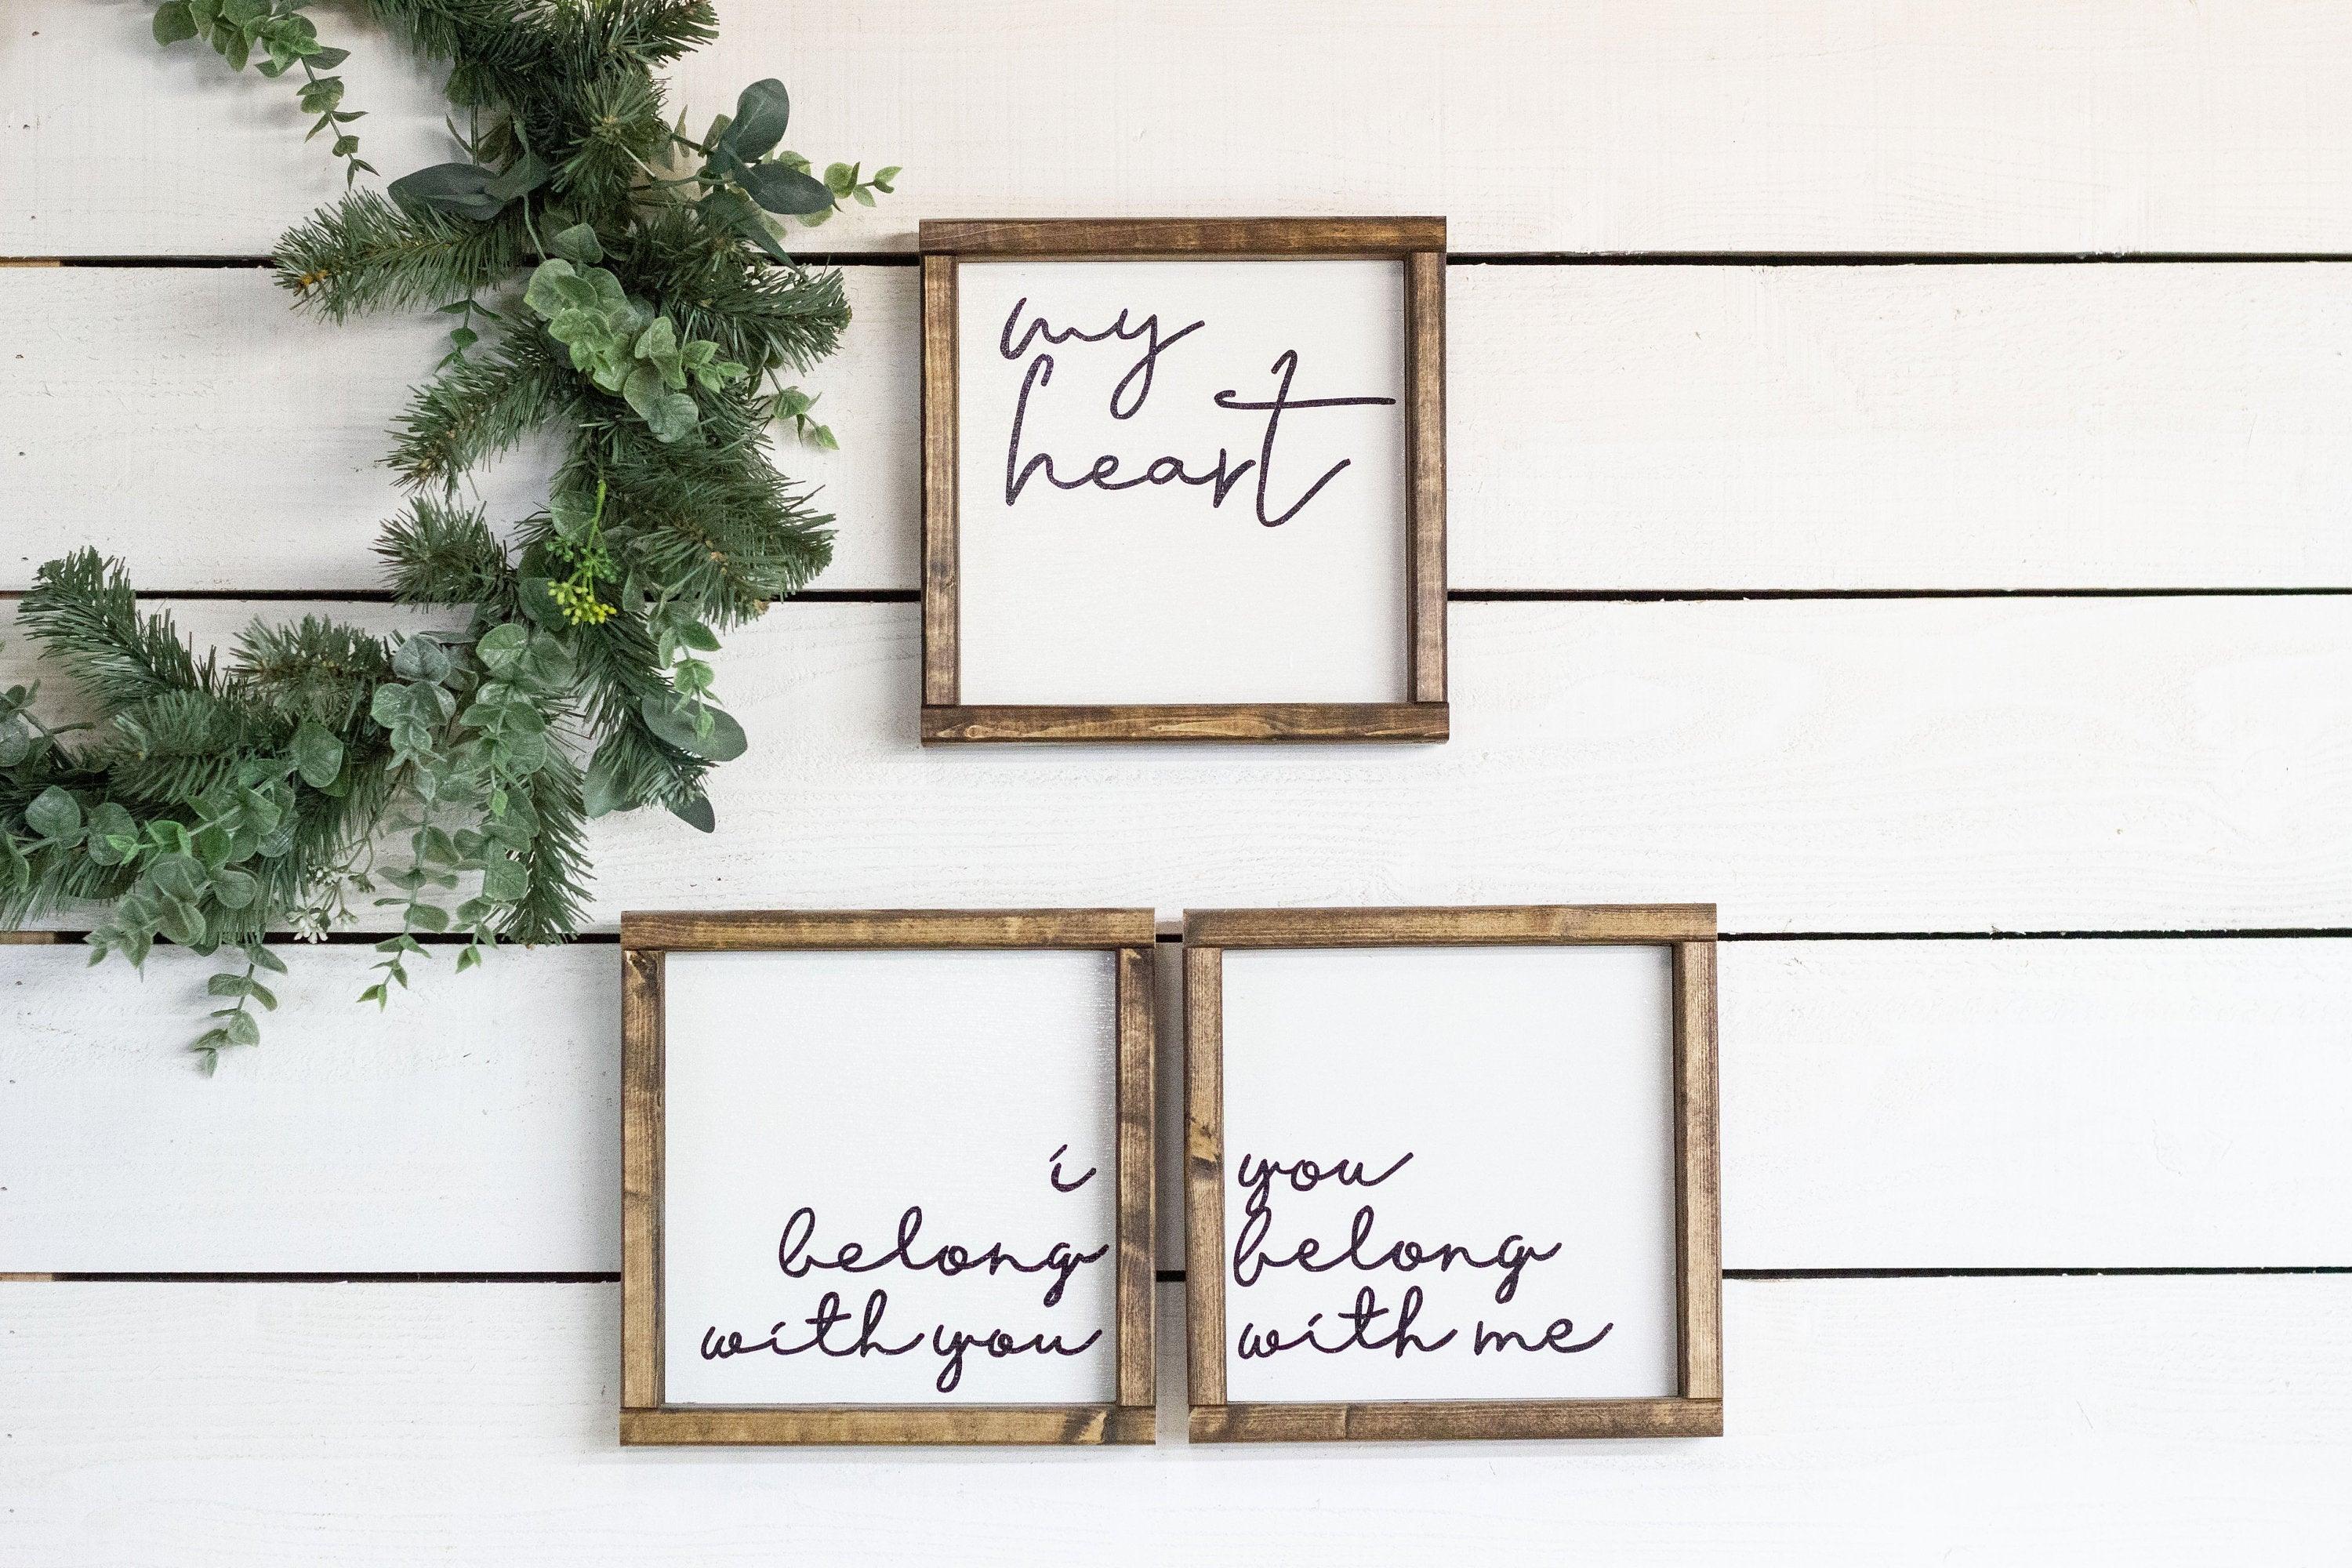 my
heart
i
belong
with you
you
belong
with me